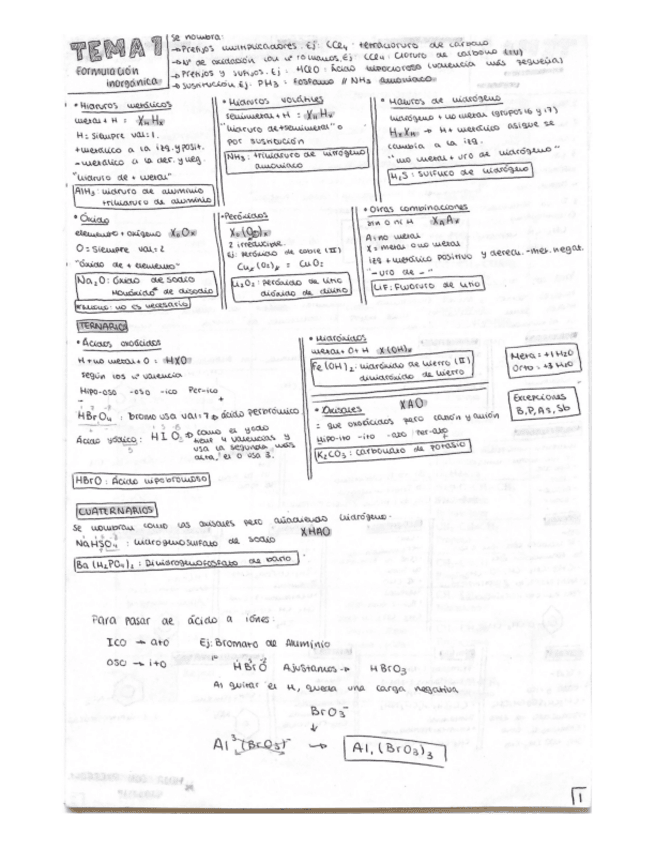 TEMA 1
Formulación
inorgánica
Se nombra:
→Prefijos multiplicadores. Ej: CCl4: tetracloruro de carbono
→Nº de oxidación con nº romanos. Ej: CCl4: Cloruro de carbono (IV)
→Prefijos y sufijos. Ej: HClO: Ácido hipocloroso (valencia más pequeña)
→Sustitución Ej: PH3: Fosfano // NH3 amoniaco
• Hidruros metálicos
metal + H = XnHx
H = siempre val=1.
+metálico a la izq. y posit.
-metálico a la der. y neg.
"hidruro de + metal"
AlH3: hidruro de aluminio
trihidruro de aluminio
• Hidruros volátiles
semimetal + H = XnHx
"hidruro de + semimetal" o
por sustitución
NH3: trihidruro de nitrógeno
amoniaco
• Haluros de hidrógeno
hidrógeno + no metal (grupos 16 y 17)
HxXn → H + metálico asique se
cambia a la izq.
"no metal + uro de hidrógeno"
H2S: sulfuro de hidrógeno
• Óxido
elemento + oxígeno XnOx
O = siempre val = 2
"óxido de + elemento"
Na2O: óxido de sodio
monóxido de disodio
no es necesario
• Peróxidos
X2(O2)x
2 irreducible.
Ej: peróxido de cobre (II)
Cu2(O2)2 = CuO2
Li2O2: peróxido de litio
dióxido de dilitio
• Otras combinaciones
sin O ni H XnAx
A = no metal
X = metal o no metal
izq + metálico positivo y derecha -met. negat.
"-uro de -"
LiF: Fluoruro de litio
TERNARIOS
• Ácidos oxoácidos
H + no metal + O = HXO
según los nº valencia
Hipo-oso -oso -ico Per-ico
- +
HBrO4: bromo usa val=7 → ácido perbrómico
Ácido yódico: HIO3 → como el yodo
tiene 4 valencias y
usa la segunda más
alta, el O usa 3.
HBrO: Ácido hipobromoso
• Hidróxidos
metal + O + H X(OH)x
Fe(OH)2: hidróxido de hierro (II)
dihidróxido de hierro
• Oxisales XAO
= que oxoácidos pero catión y anión
Hipo-ito -ito -ato Per-ato
K2CO3: carbonato de potasio
Meta = +1 H2O
Orto = +3 H2O
Excepciones
B, P, As, Sb
CUATERNARIOS
Se nombran como las oxisales pero añadiendo hidrógeno.
XHAO
NaHSO4: hidrogenosulfato de sodio
Ba(H2PO4)2: Dihidrogenofosfato de bario
Para pasar de ácido a iones:
ICO → ato Ej: Bromato de Aluminio
OSO → ito HBrO Ajustamos → HBrO3
Al quitar el H, queda una carga negativa
BrO3⁻
↓
Al³(BrO3)⁻ → Al1(BrO3)3
1